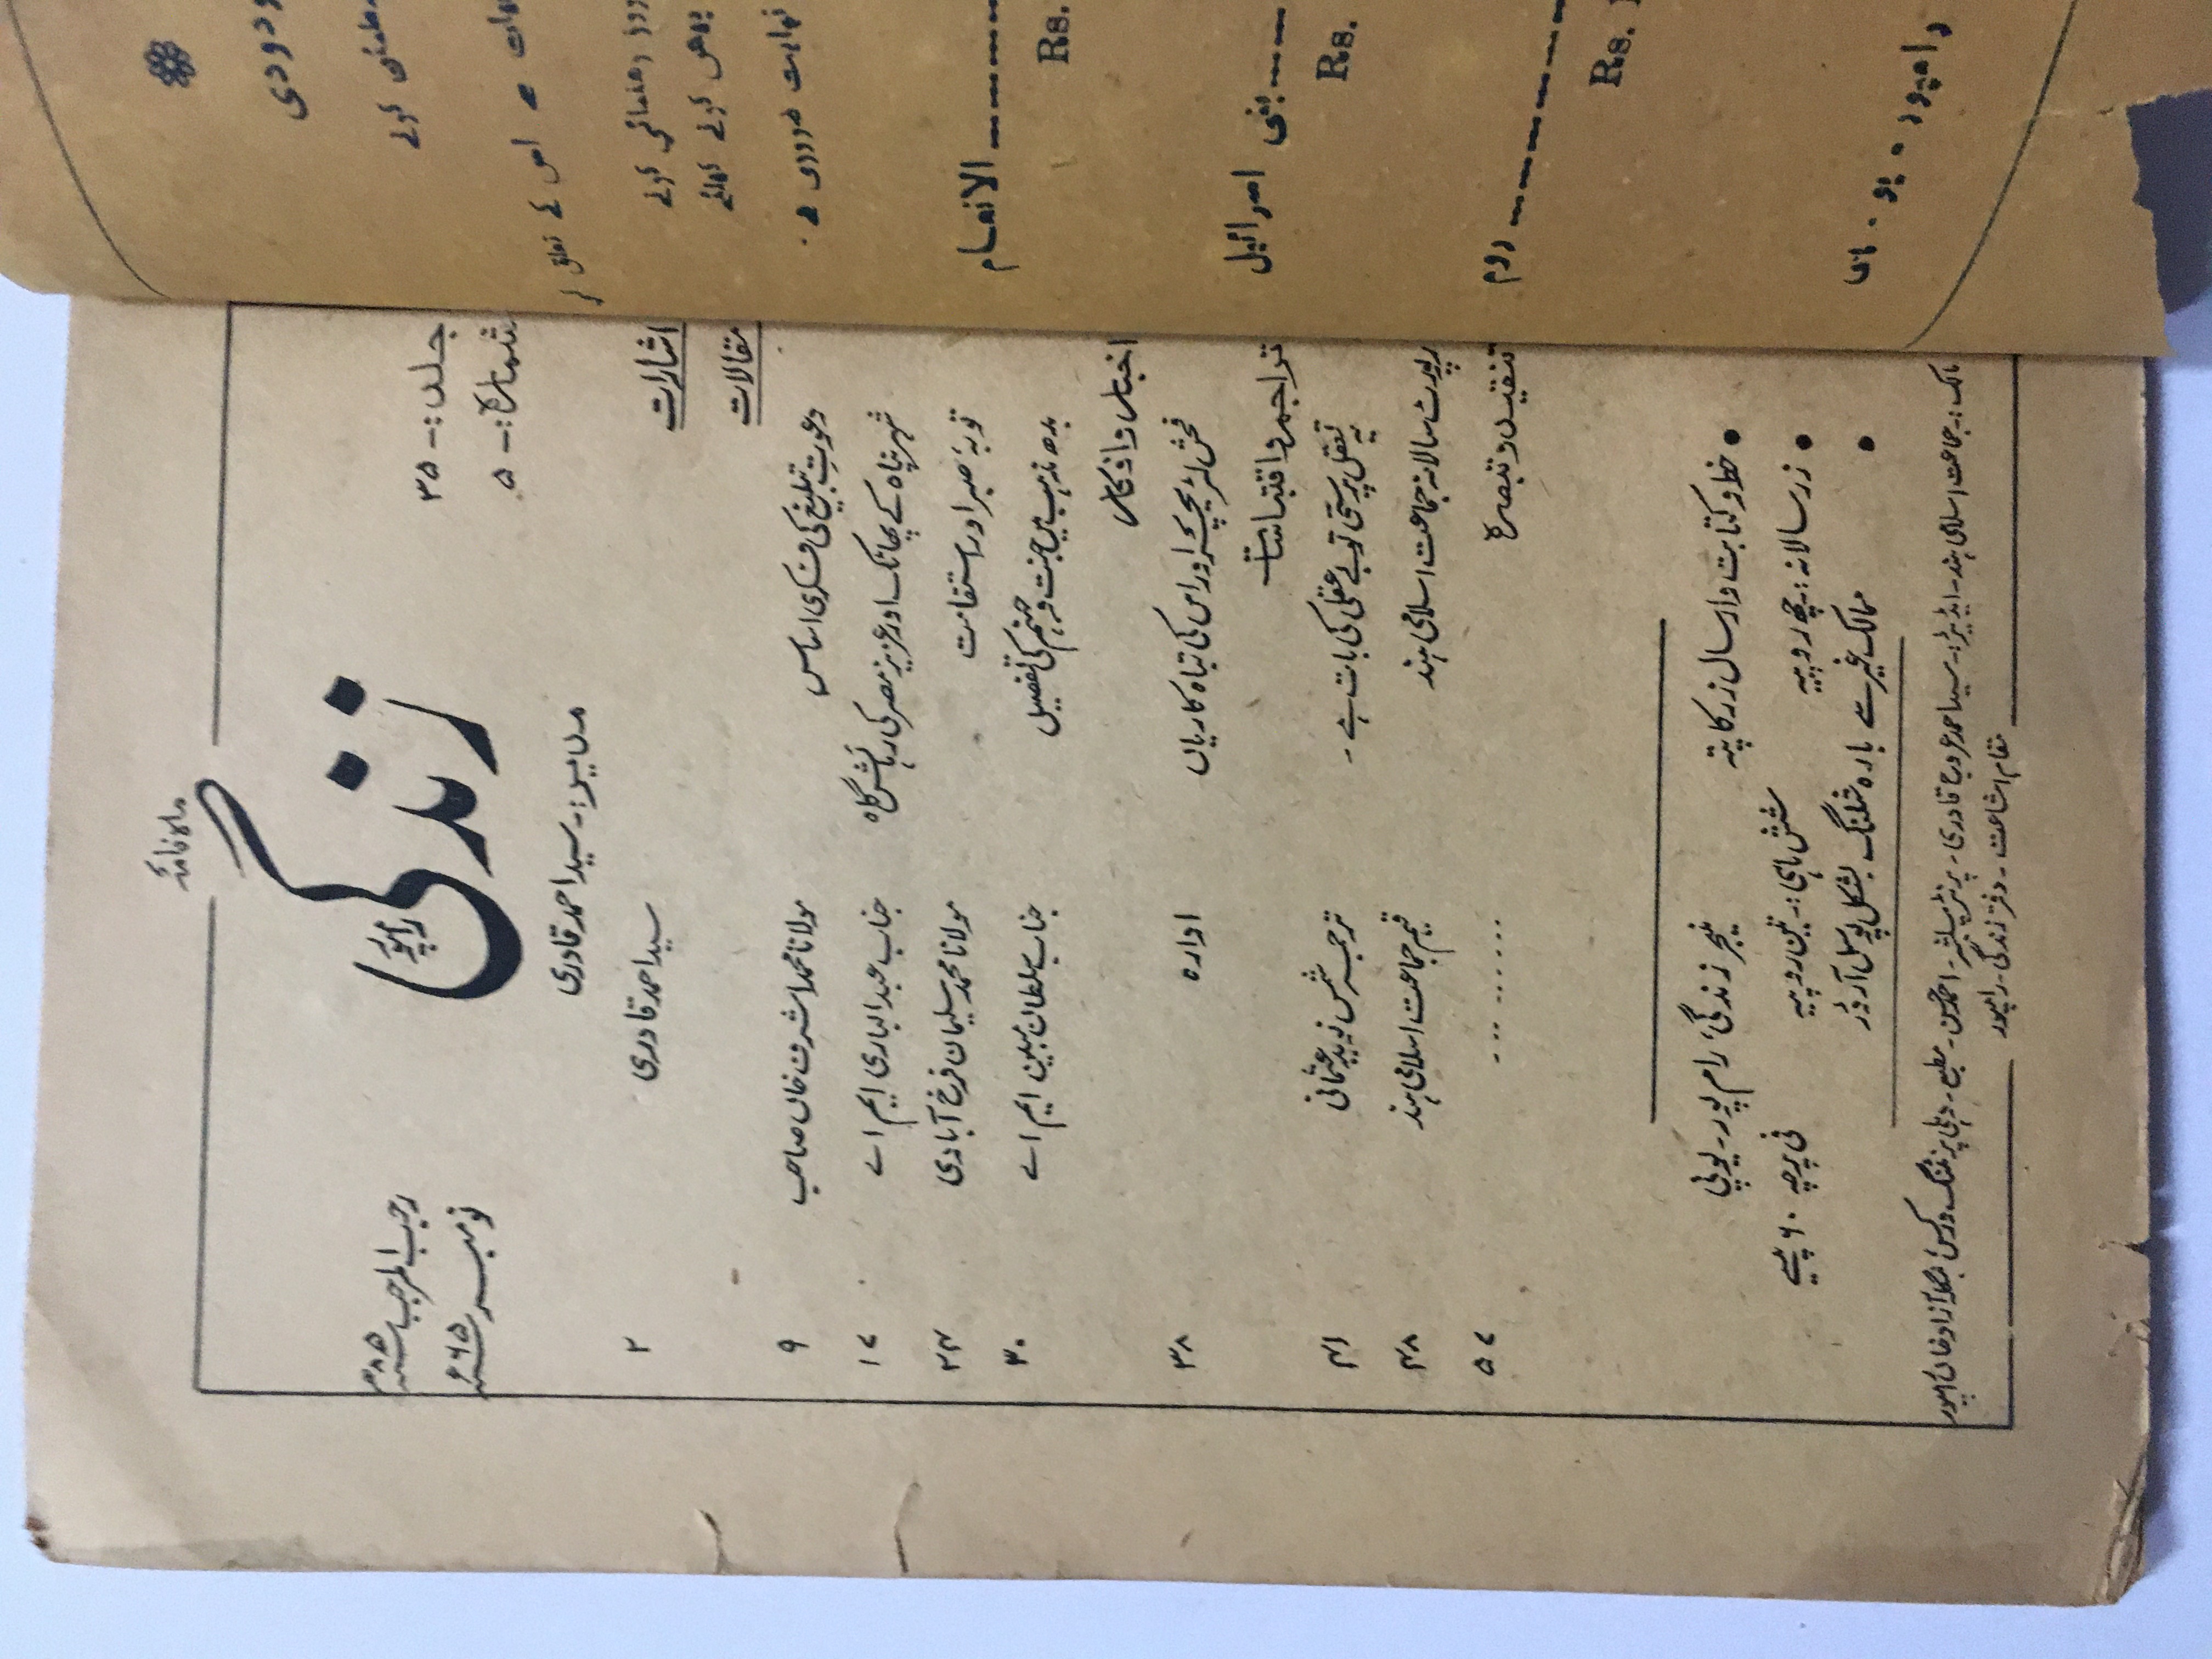 ماہنامہ
زندگی
رامپور
جلد:- ۳۵
شمارہ:- ۵
رجب المرجب ۱۳۸۵ھ
نومبر ۱۹۶۵ء
مدیر:- سید احمد قادری
اشارات سید احمد قادری ۲
مقالات
دعوت تبلیغ کی فکری اساس مولانا محمد اشرف خاں صاحب ۹
شہر پناہ کے پھاٹک اور عزیز مصر کی رہائش گاہ جناب عبدالباری ایم اے ۱۷
توبہ، صبر اور استقامت مولانا محمد سلیمان فرخ آبادی ۲۴
بدھ مذہب میں جنت و جہنم کی تفصیل جناب سلطان مبین ایم اے ۳۰
اخبار و افکار
فحش لٹریچر اور اس کی تباہ کاریاں ادارہ ۳۸
تراجم و اقتباسات
یہ عقل پرستی تو بے عقلی کی بات ہے۔ ترجمہ شمس نوید عثمانی ۴۱
رپورٹ سالانہ جماعت اسلامی ہند قیم جماعت اسلامی ہند ۴۸
تنقید و تبصرہ ۵۷
• خط و کتابت و ارسال زر کا پتہ منیجر زندگی، رام پور۔ یوپی
• زر سالانہ:- چھ روپیہ شش ماہی:- تین روپیہ فی پرچہ ۶۰ پیسے
• ممالک غیر سے بارہ شلنگ بشکل پوسٹل آرڈر
مالک:- جماعت اسلامی ہند۔ ایڈیٹر:- سید احمد عروج قادری۔ پرنٹر پبلشر:- احمد حسن۔ مطبع۔ دہلی پرنٹنگ ورکس، بنگلہ آزاد خاں رامپور
مقام اشاعت۔ دفتر زندگی۔ رامپور
ودودی
کرنے
اس کے
کرنے
ضروری ہے۔
الانعام
Rs.
بنی اسرائیل
Rs.
دوم
Rs.
رامپور ۔ یو۔ پی